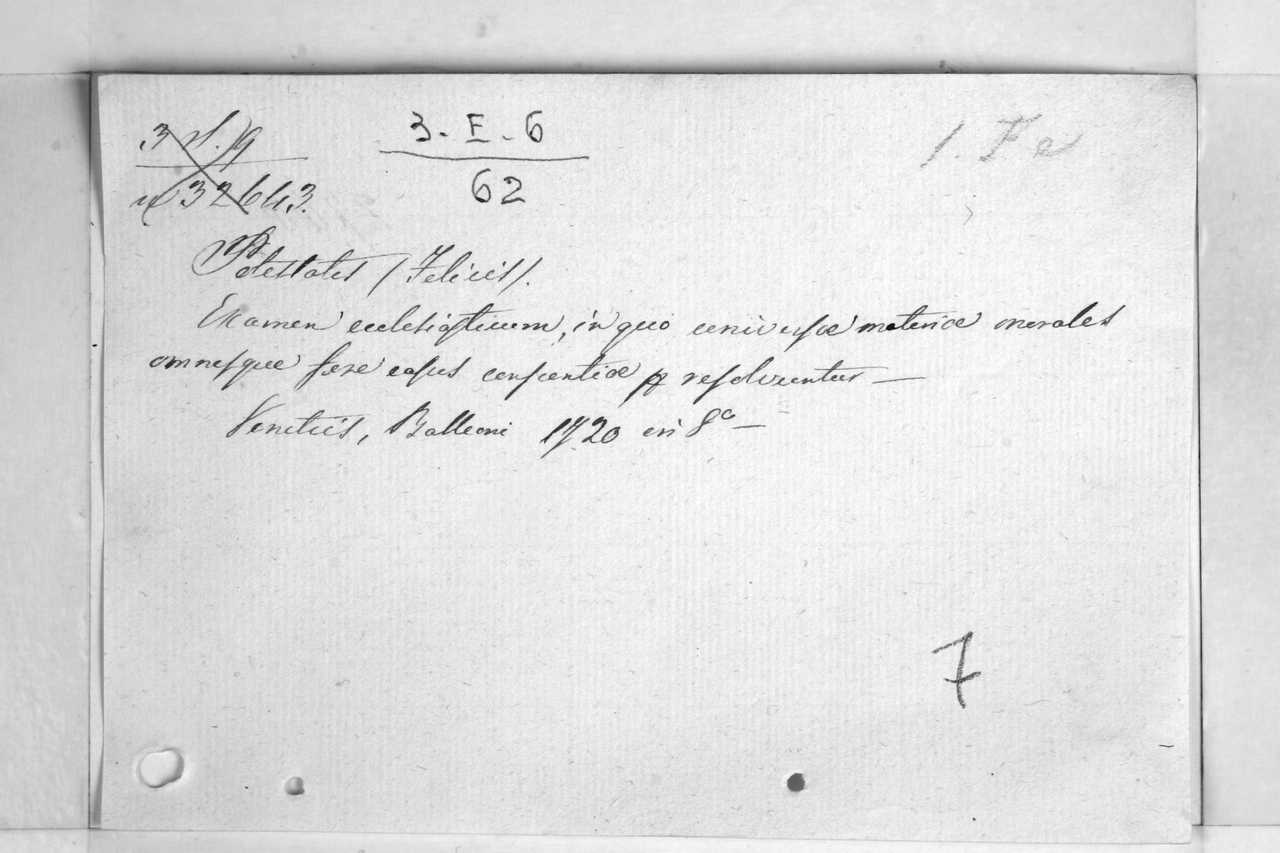 3. E. 6
62
1. Fe
n 32643.
Potestates (Felicis).
Examen ecclesiasticum, in quo universæ materiæ morales
omnesque fere casus conscentiæ resolvuntur —
Venetiis, Balleoni 1720 in 8º —
7